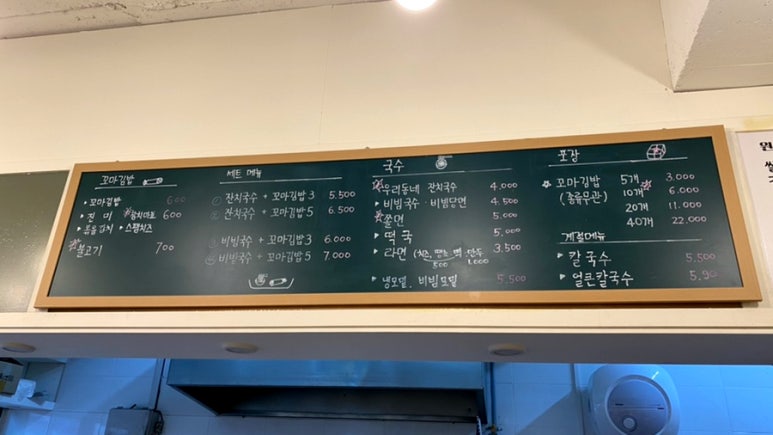 꼬마김밥
• 꼬마김밥 600
• 진미 참치마요 600
• 볶음김치 • 스팸치즈
불고기 700
세트 메뉴
① 잔치국수 + 꼬마김밥 3 5.500
② 잔치국수 + 꼬마김밥 5 6.500
③ 비빔국수 + 꼬마김밥 3 6.000
④ 비빔국수 + 꼬마김밥 5 7.000
국수
우리동네 잔치국수 4.000
비빔국수 · 비빔당면 4.500
쫄면 5.000
떡국 5.000
라면 3.500
500 1.000
냉모밀, 비빔모밀 5.500
포장
꼬마김밥 5개 3.000
(종류무관) 10개 6.000
20개 11.000
40개 22.000
계절메뉴
칼국수 5.500
얼큰칼국수